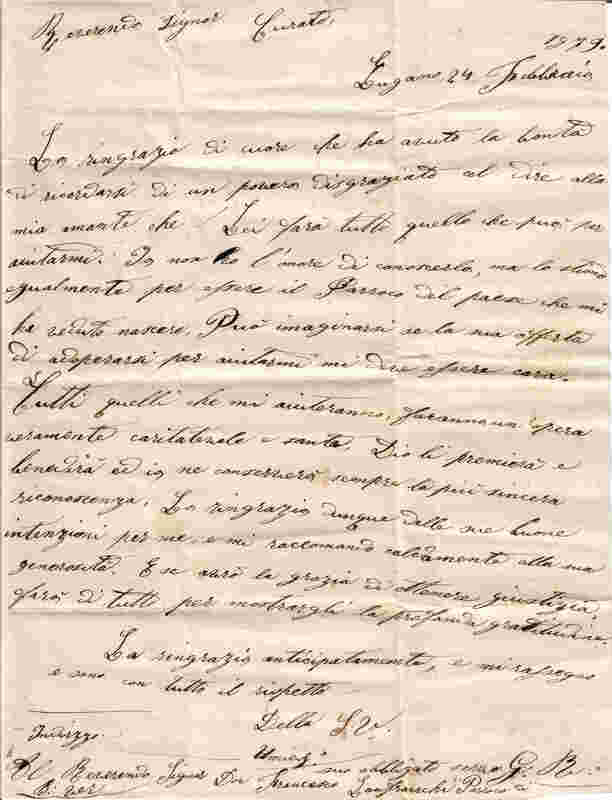 Reverendo Signor Curato,
1879.
Lugano, 24 Febbraio
La ringrazio di cuore che ha avuto la bontà
di ricordarsi di un povero disgraziato ed dire alla
mia amante che Lei farà tutto quello che può per
aiutarmi. Io non ho l'onore di conoscerlo, ma lo stimo
egualmente per essere il Parroco del paese che mi
ha veduto nascere. Può imaginarsi se la sua offerta
di adoperarsi per aiutarmi mi deve essere cara.
Tutti quelli che mi aiuteranno, faranno un'opera
veramente caritatevole e santa. Dio li premierà e
benedirà ed io ne conserverò sempre la più sincera
riconoscenza. La ringrazio dunque delle sue buone
intenzioni per me, e mi raccomando caldamente alla sua
generosità. E se avrò la grazia di ottenere giustizia,
farò di tutto per mostrargli la profonda gratitudine.
La ringrazio anticipatamente, e mi rassegno
e sono con tutto il rispetto
Della S. V.
Indirizzo
suo obbligato servo G. B.
Al Reverendo Signor Don Francesco Parroco